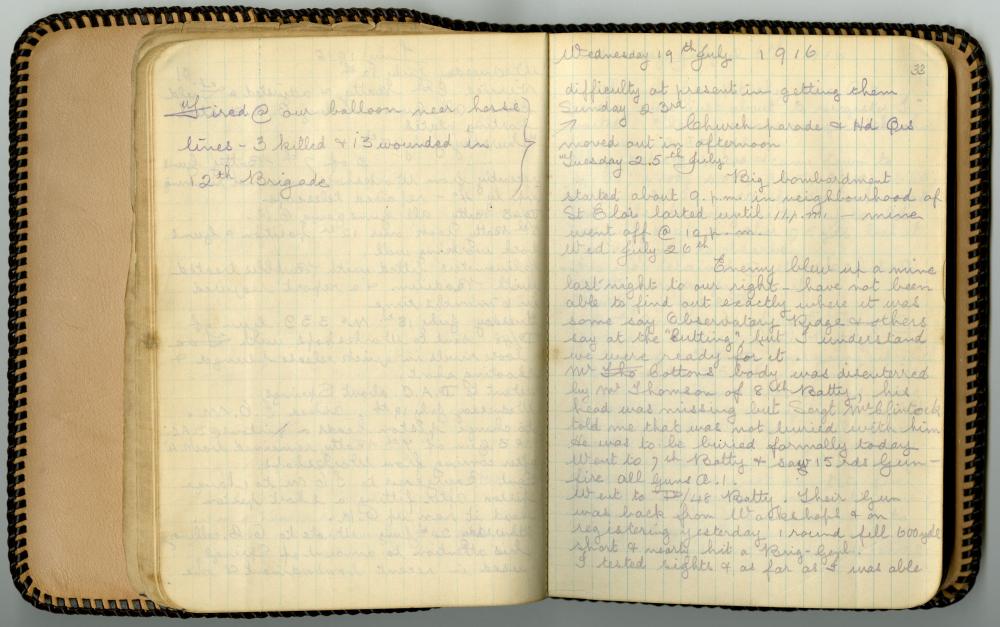 Fired @ our balloon near horse
lines - 3 killed & 13 wounded in
12th Brigade
Wednesday 19th July 1916
33
difficulty at present in getting them
Sunday 23rd
Church parade & Hd Qrs
moved out in afternoon
Tuesday 25th July
Big bombardment
started about 9 p.m. in neighbourhood of
St Eloi lasted until 11 p.m. - mine
went off @ 10 p.m.
Wed July 26th
Enemy blew up a mine
last night to our right - have not been
able to find out exactly where it was
some say Observatory Ridge & others
say at the "Cutting", but I understand
we were ready for it.
Mr Cottons body was disenterred
by Mr Thomson of 8th Batty, his
head was missing but Sergt McClintock
told me that was not buried with him
He was to be buried formally today
Went to 7th Batty & saw 15 rds Gun-
fire all Guns A.1.
Went to /48 Batty. Their Gun
was back from Workshops & on
registering yesterday 1 round fell 600 yds
short & nearly hit a Brig-Genl.
I tested sights & as far as I was able